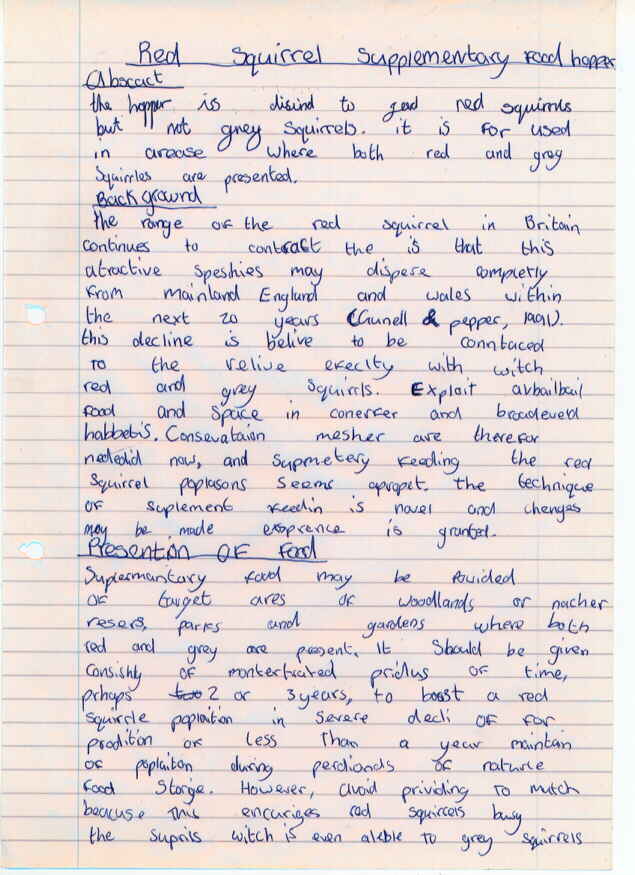 Red Squirrel Supplementary Food hopper
Abscact
the hopper is disind to geed red squirruls
but not grey squirrels. it is for used
in arease where both red and grey
Squirrles are presented.
Background
the range of the red squirrel in Britain
continues to contract the is that this
atractive speshies may dispere completly
from mainland England and wales within
the next 20 years (Gunell & pepper, 1991).
this decline is belive to be conntaced
to the relive execlty with witch
red and grey squirrls. Exploit avbailbail
food and space in conerfer and broadeverd
habbetis. Consevataion mesher are therefor
nededid now, and supmetery feeding the red
squirrel poplasons seems apropet. the technique
of suplement feedin is novel and chenges
may be made exsprence is granted.
Presention OF Food
Suplermantary food may be Povided
of target ares of woodlands or nacher
resers, parks and gardens where both
red and grey are present. It should be given
Consishly of montertrated pridlus of time,
prhaps 2 or 3 years, to boast a red
squirrle poplaition in severe decli of for
prodition or less than a year maintain
of poplaiton during perdiands of naturle
food storge. However, avoid prividing to mutch
beacuse this encuriges red squirrels busy
the suprils witch is even aleble to grey squirrels